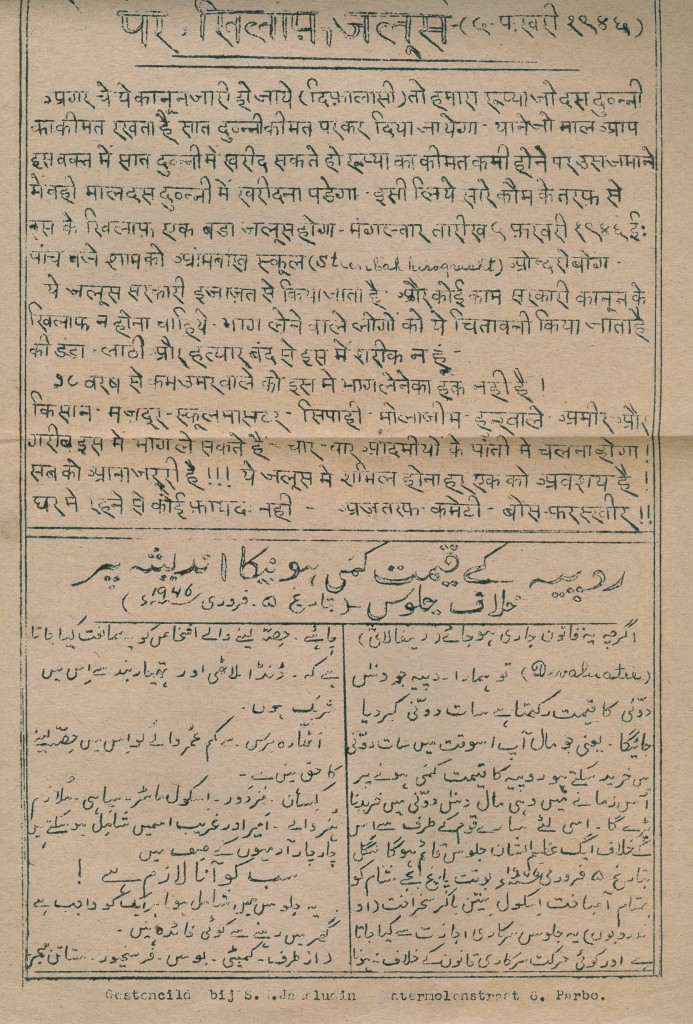 पर खिलाफ़ जलूस - (५ फ़रवरी १९४६)
अगर चे ये कानून जारी हो जाये (दिफ़ालासी) तो हमारा रूप्या जो दस दुव्न्नी
का कीमत रखता है सात दुव्न्नी कीमत पर कर दिया जायेगा - याने जो माल आप
इस वक्त में सात दुव्न्नी में खरीद सकते हो रूप्या का कीमत कमी होने पर उस जमाने
में वही माल दस दुव्न्नी में खरीदना पडेगा - इसी लिये सारे कौम के तरफ से
इस के खिलाफ़ एक बडा जलूस होगा - मंगलवार तारीख ५ फ़रवरी १९४६ ई॰
पांच बजे शाम को स्कूल
ये जलूस सरकारी इजाज़त से किया जाता है - और कोई काम सरकारी कानून के
खिलाफ न होना चाहिये - भाग लेने वाले लोगों को ये चितावनी किया जाता है
की डंडा - लाठी और हत्यार बंद से इस में शरीक न हूं -
१८ वरष से कम उमर वाले को इस में भाग लेने का हक नही है ।
किसान - मजदूर - स्कूल मासटर - सिपाही - मोलाजीम - हुन्रवाले - अमीर - और
गरीब इस में भाग ले सकते हैं - चार - चार आदमीयों के पांती में चलना होगा !
सब को आना जरूरी है !!! ये जलूस में शामिल होना हर एक को अवशय है !
घर में रहने से कोई फ़ायदा नही - अज़ तरफ - कमेटी - बोस -
روپیہ کے قیمت کمی ہونیکا اندیشہ پر
خلاف جلوس - (بتاریخ ۵ فروری 1946ء)
اگرچہ یہ قانون جاری ہو جائے (دیفالاتی)
(Devaluatie) تو ہمارا روپیہ جو دس
دونّی کا قیمت رکھتا ہے سات دونّی کر دیا
جائیگا - یعنی جو مال آپ اسوقت میں سات دونّی
میں خرید سکتے ہو روپیہ کا قیمت کمی ہونے پر
اُس زمانے میں وہی مال دس دونّی میں خریدنا
پڑے گا - اسی لئے سارے قوم کے طرف سے اس
کے خلاف ایک عظیم الشان جلوس قائم ہوگا منگل
بتاریخ ۵ فروری بوقت پانچ بجے شام کو
بمقام اسکول
یہ جلوس سرکاری اجازت سے کیا جاتا
ہے اور کوئی حرکت سرکاری قانون کے خلاف نہ ہونا
چاہئے - حصّہ لینے والے اشخاص کو یہ کیا جاتا
ہے کہ - ڈنڈا لاٹھی اور ہتھیار بند سے اس میں
شریک نہ ہوں -
اٹھارہ برس سے کم عمر والے کو اس میں حصّہ لینے
کا حق نہیں ہے -
کسان - مزدور - اسکول ماسٹر - سپاہی - ملازم
ہنر والے - امیر اور غریب اسمیں شامل ہو سکتے ہیں
چار چار آدمیوں کے صف میں
سب کو آنا لازم ہے !
یہ جلوس میں شامل ہونا ہر ایک کو واجب ہے
گھر میں رہنے سے کوئی فائدہ نہیں -
(از طرف - کمیٹی - بوس -
Gestencild bij S. Parbo.